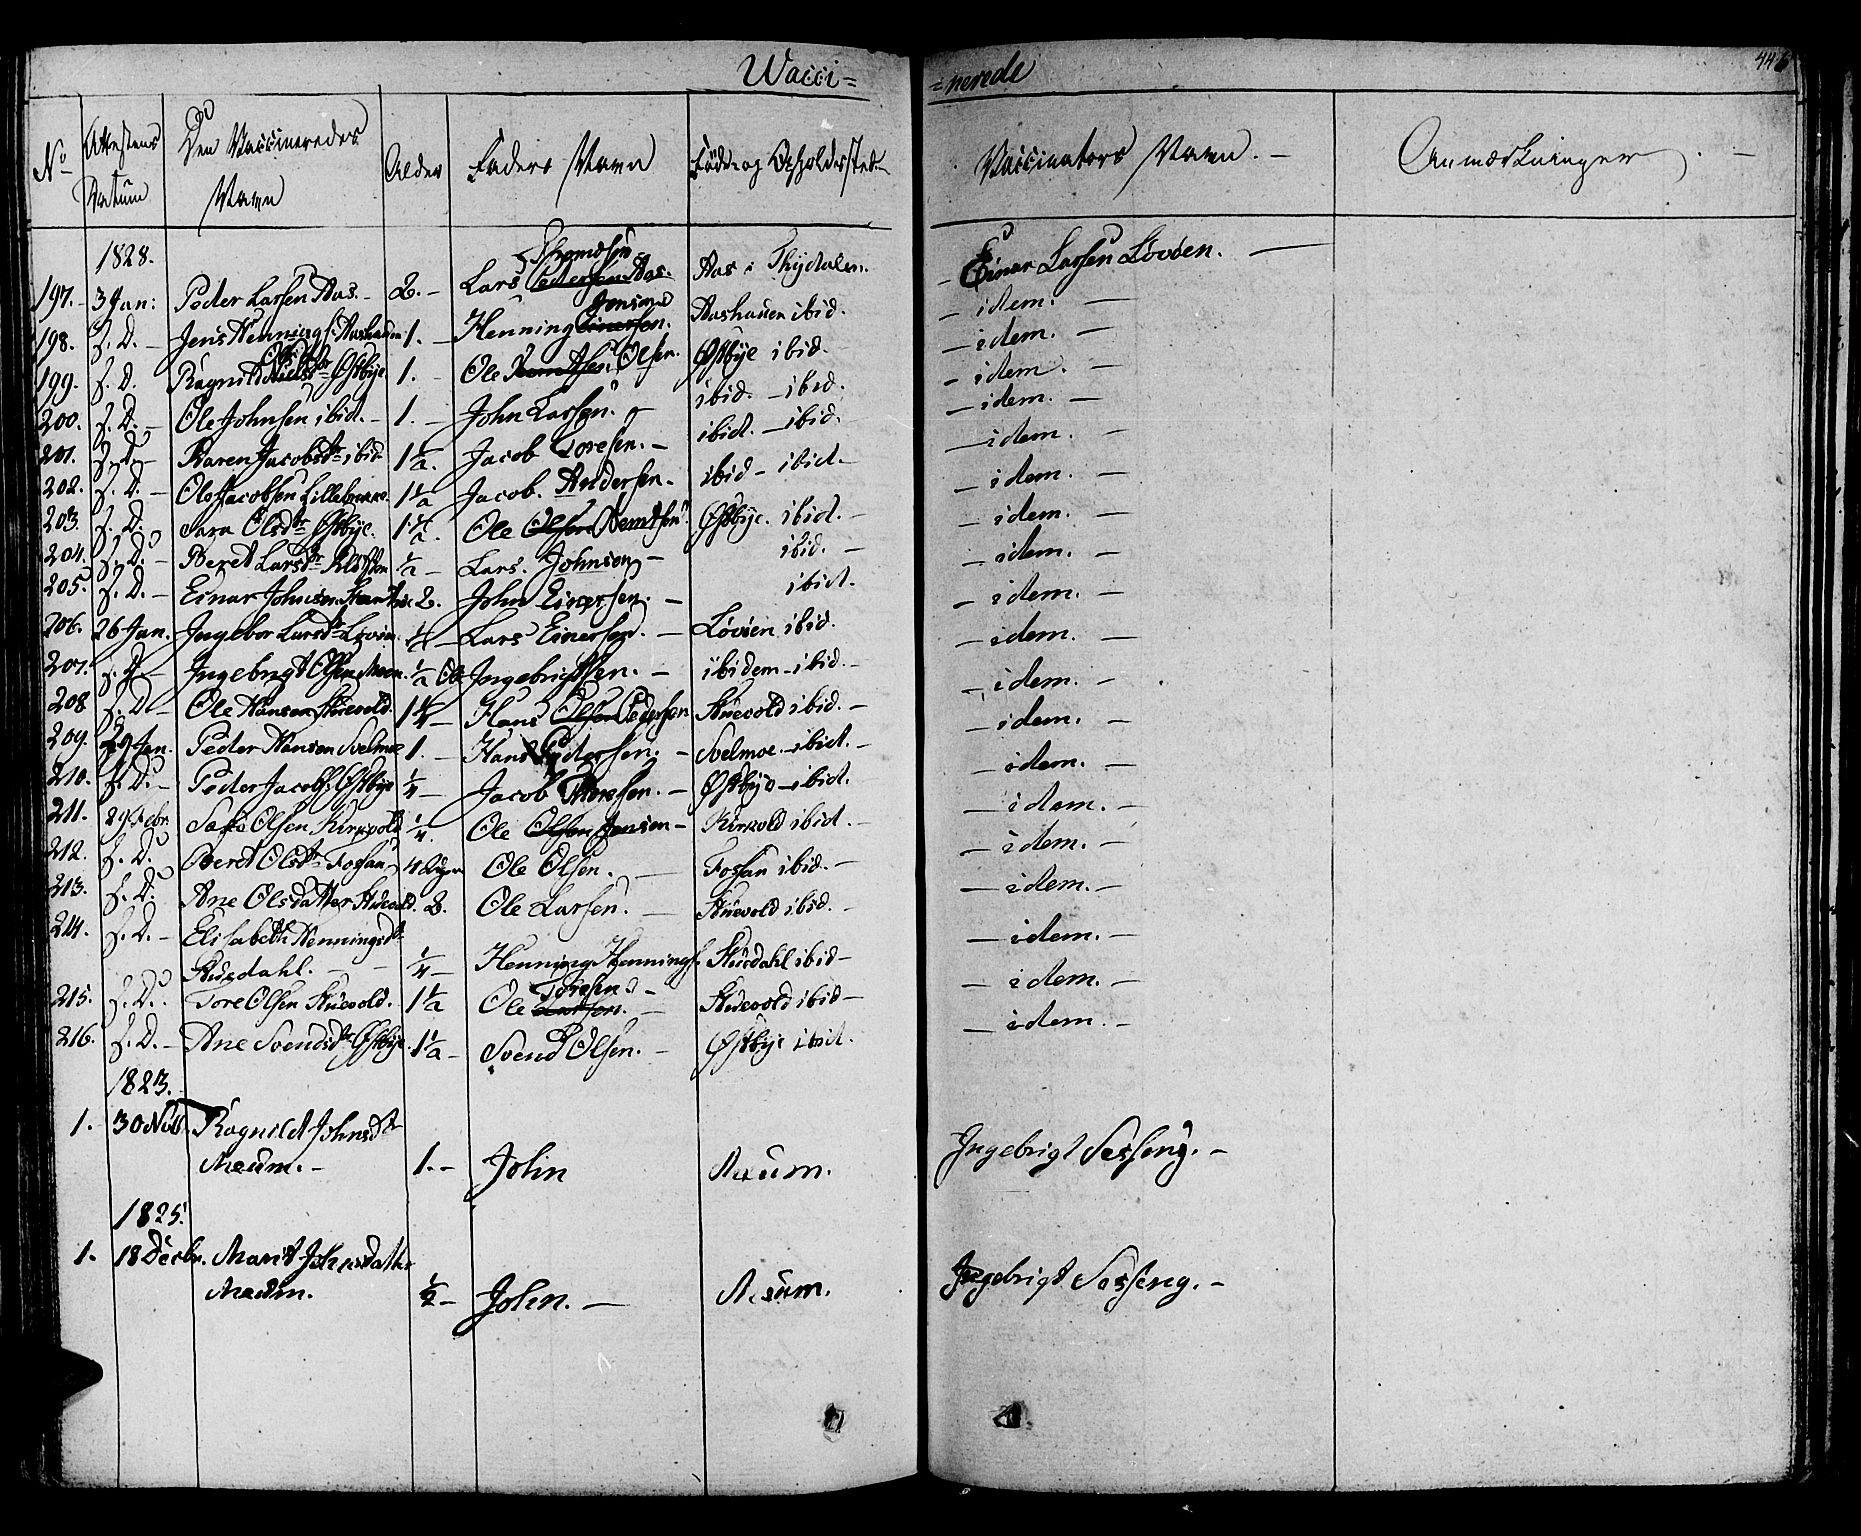 Wacci=
=nerede
446
No
Attestens Datum
Den Vaccineredes Navn
Alder
Faders Navn
Føde og Opholdssted
Vaccinators Navn. —
Anmærkninger. —
1828.
197. 3 Jan: Peder Larsen Aas. — 2. — Lars Pedersen Aas. Aas i Thydalen. — Einar Larsen Løvøen. —
198. s. D. — Jens Hennings. Aashauen 1. — Henning Einersen. Jensen Aashauen ibid. — idem. —
199. s. D. Ragnild Nielsdtr Olsdtr Østbye. 1. — Ole Olsen. Østbye ibid. — idem. —
200. s. D. — Ole Johnsen ibid. — 1. — John Larsen. — ibid. — ibid. — idem. —
201. s. D. — Karen Jacobsdtr ibid 1 1/2. Jacob Toresen. — ibid. — ibid. — idem. —
202. s. D. — Ole Jacobsen 1 1/2 Jacob. Andersen. — ibid — ibid. — — idem. —
203. s. D. — Sara Olsdtr Østbye. 1 1/2. Ole Olsen Berntsen. Østbye. ibid. — — idem. —
204. s. D. — Beret Larsdtr 1/2 — Lars. Johnsen — ibid. — — idem. —
205. s. D. — Einar Johnsen 2. John Einersen. — ibid. — idem. —
206. 26 Jan. Ingebor Larsdtr Løvøen. 1/4 — Lars Einersen. — Løvöen ibid. — idem. —
207. s. D — Ingebrigt Olsen Moen. 1/2 Ole Ingebrigtsen. — ibidem — ibid. — — idem. —
208 s. D — Ole Hansen Stuevold. 1 1/4 — Hans Olsen Pedersen Stuevold ibid. — — idem. —
209. 29 Jan. Peder Hansen Svelmoe 1. — Hans Pedersen. — Svelmoe. — ibid. — — idem. —
210. s. D. — Peder Jacobs. Østbye 1/4 — Jacob Thoresen. — Østbye — ibid. — — idem. —
211. 29 Febr. Olsen Kirkvold 1/4. Ole Olsen Jensen — Kirkvold ibid. — — idem. —
212. s. D. Beret Olsdtr Fossan 4 Uger Ole Olsen. — Fossan ibid. — — idem. —
213. s. D. Ane Olsdatter Stuevold. 2. Ole Larsen. — Stuevold ibid. — — idem. —
214. s. D. — Elisabeth Henningsdtr
Stuedahl. — — 1/4 — Henning Hennings. Stuedahl ibid — — idem. —
215. s. D. Tore Olsen Stuevold. 1 1/2 Ole Larsen. Toresen. — Stuevold ibid — — idem. —
216. s. D. — Ane Svendsdtr Østbye. 1 1/2 — Svend Olsen. — Østbye ibid. — idem. —
1823.
1. 30 Nov. Ragnild Johnsdtr
Næum. — 1. — John Næum. Ingebrigt Sesseng. —
1825.
1. 18 Decbr. Marit Johnsdatter
Næum. 1/2 — John. — Næum. Ingebrigt Sesseng. —